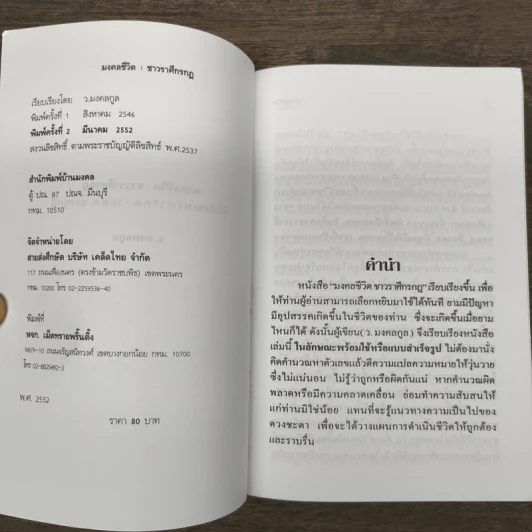 มงคลชีวิต : ชาวราศีกรกฎ
เรียบเรียงโดย ว.มงคลกูล
พิมพ์ครั้งที่ 1 สิงหาคม 2546
พิมพ์ครั้งที่ 2 มีนาคม 2552
สงวนลิขสิทธิ์ ตามพระราชบัญญัติลิขสิทธิ์ พ.ศ.2537
สำนักพิมพ์บ้านมงคล
ตู้ ปณ. 87 ปณจ. มีนบุรี
กทม. 10510
จัดจำหน่ายโดย
สายส่งศึกษิต บริษัท เคล็ดไทย จำกัด
117 ถนนเฟื่องนคร (ตรงข้ามวัดราชบพิธ) เขตพระนคร
กทม. 10200 โทร 02-2259536-40
พิมพ์ที่
หจก. เม็ดทรายพริ้นติ้ง
ถนนเจริญสนิทวงศ์ เขตบางกอกน้อย กทม. 10700
โทร 02-8825492-3
พ.ศ. 2552
ราคา 80 บาท
คำนำ
หนังสือ "มงคลชีวิต ชาวราศีกรกฎ" เรียบเรียงขึ้น เพื่อ
ให้ท่านผู้อ่านสามารถเลือกหยิบมาใช้ได้ทันที ยามมีปัญหา
มีอุปสรรคเกิดขึ้นในชีวิตของท่าน ซึ่งจะเกิดขึ้นเมื่อยาม
ไหนก็ได้ ดังนั้นผู้เขียน(ว.มงคลกูล) จึงเรียบเรียงหนังสือ
เล่มนี้ ในลักษณะพร้อมใช้หรือแบบสำเร็จรูป ไม่ต้องมานั่ง
คิดคำนวณหาตัวเลขแล้วตีความแปลความหมายให้วุ่นวาย
ซึ่งไม่แน่นอน ไม่รู้ว่าถูกหรือผิดกันแน่ หากคำนวณผิด
พลาดหรือมีความคลาดเคลื่อน ย่อมทำความสับสนให้
แก่ท่านมิใช่น้อย แทนที่จะรู้แนวทางความเป็นไปของ
ดวงชะตา เพื่อจะได้วางแผนการดำเนินชีวิตให้ถูกต้อง
และราบรื่น